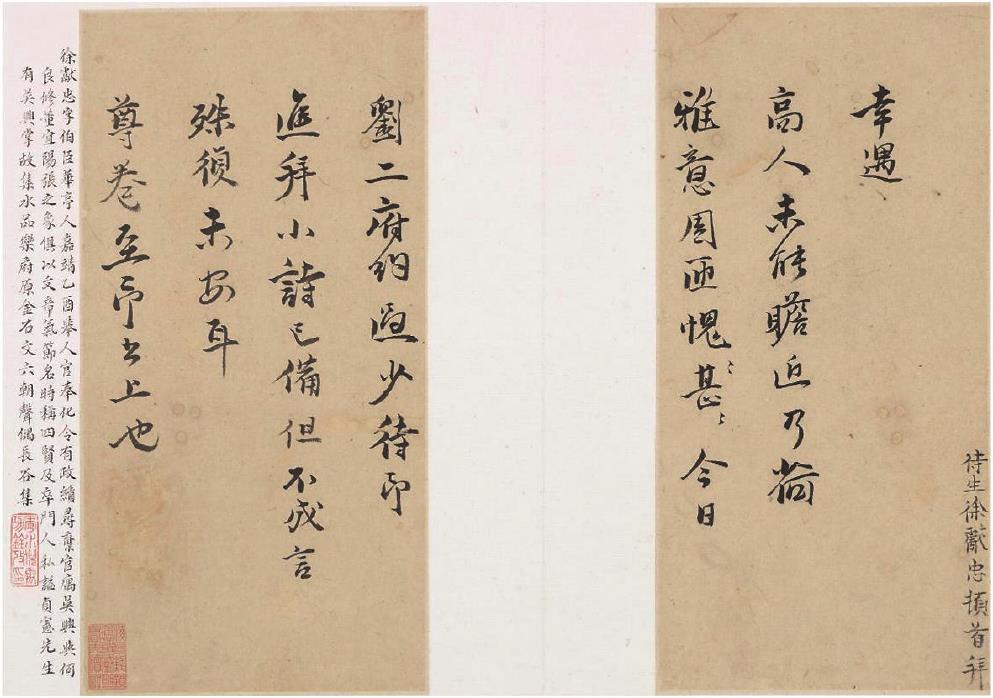 侍生徐獻忠頓首拜
幸遇
高人未能瞻近乃荷
雅意周匝愧甚〻今日
劉二府約遊少待即
進拜小詩已備但不成言
殊須未安耳
尊卷至即書上也
徐獻忠字伯臣華亭人嘉靖乙酉舉人官奉化令有政績尋棄官寓吳興與何
良修董宜陽張之象俱以文章氣節名時稱四賢及卒門人私諡貞憲先生
有吳興掌故集水品樂府原金石文六朝聲偶長谷集